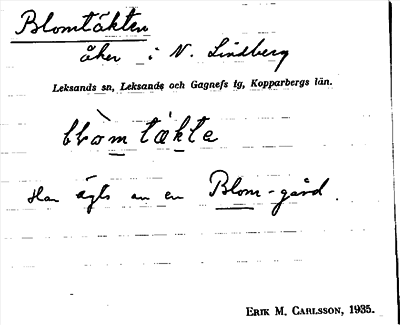 Blomtäkten
åker i N. Lindberg
Leksands sn, Leksands och Gagnefs tg, Kopparbergs län.
blòm täkta
Har ägts av en Blom-gård.
ERIK M. CARLSSON, 1935.